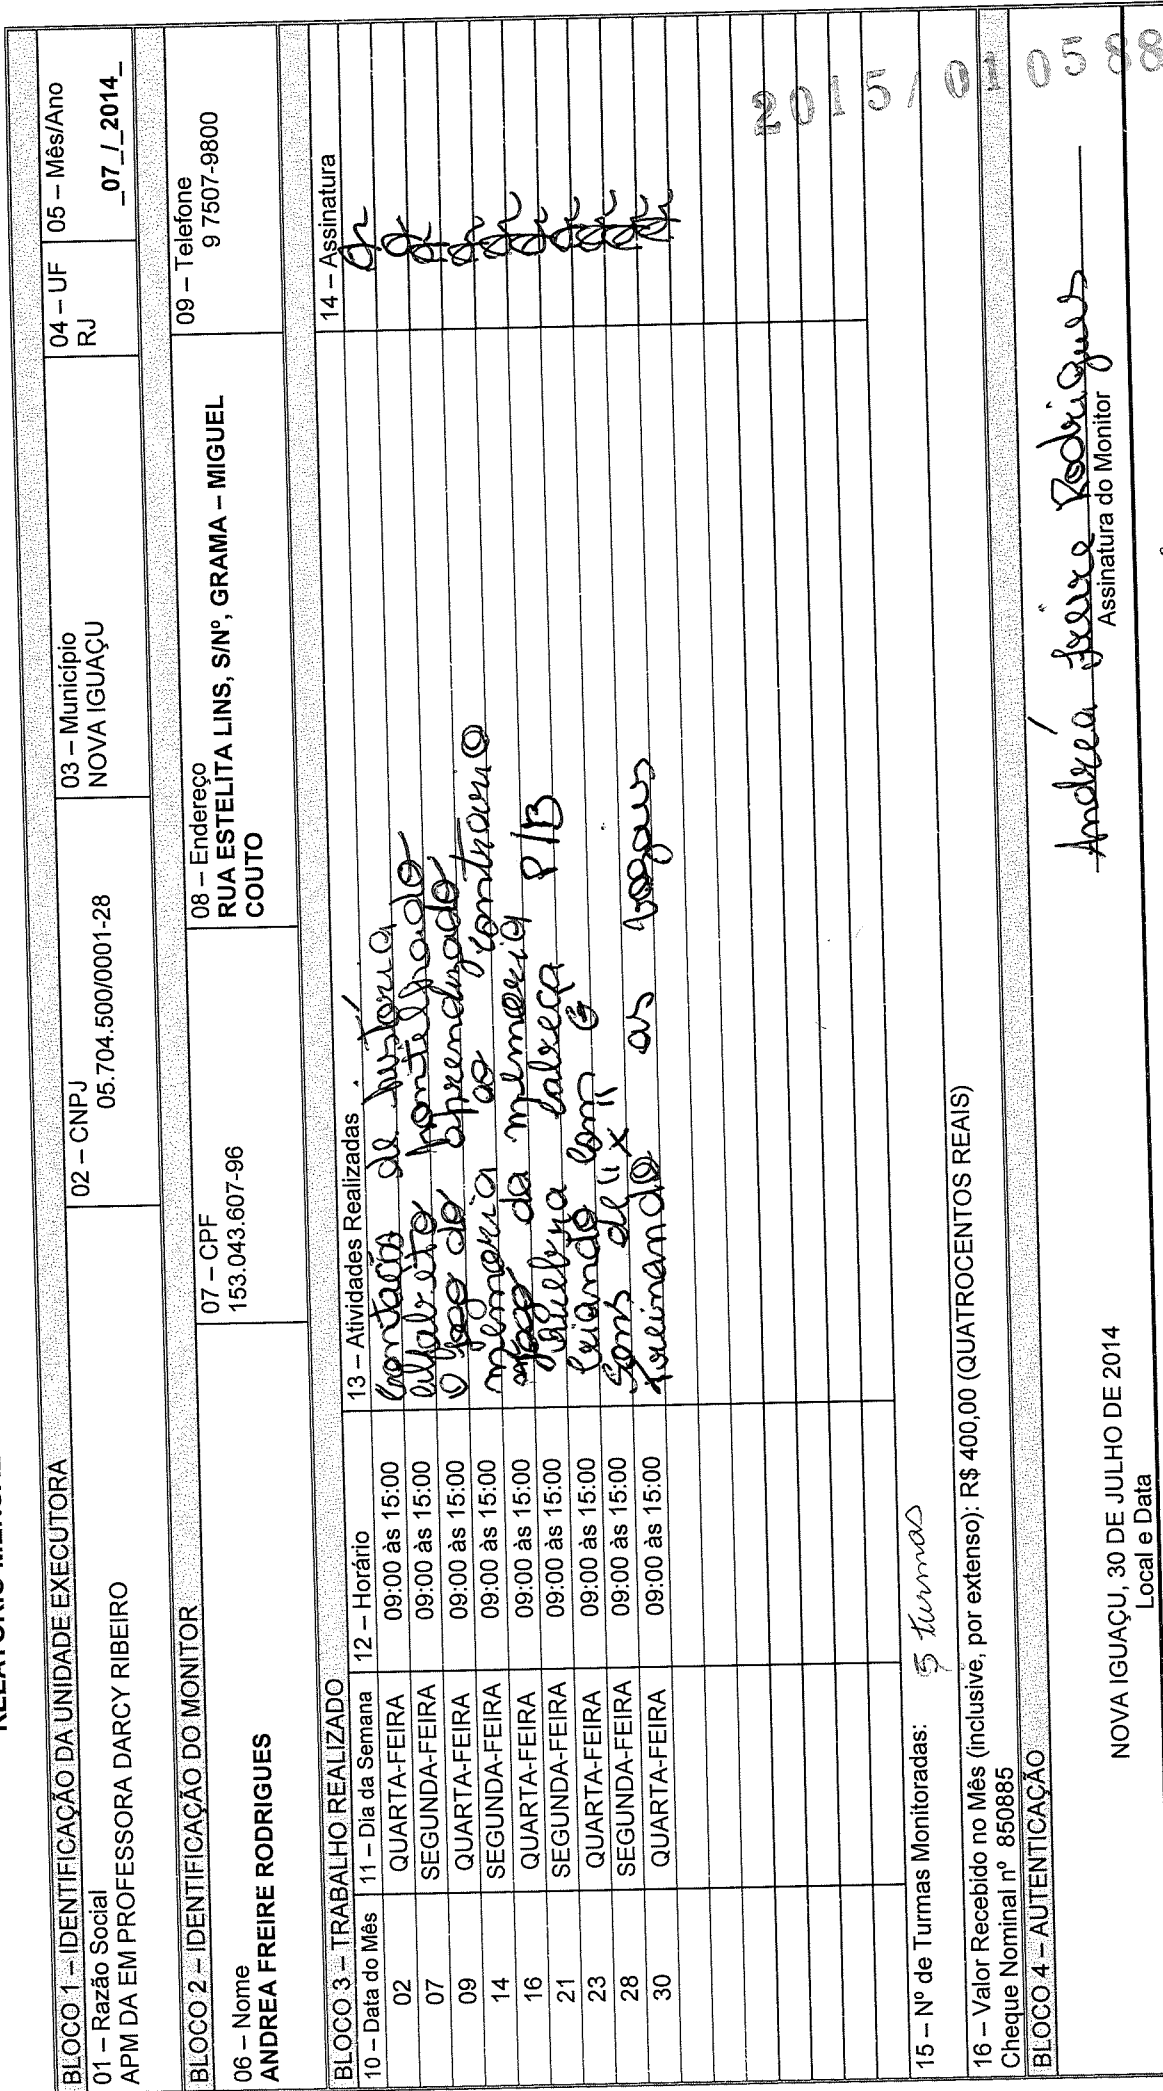 BLOCO 1 – IDENTIFICAÇÃO DA UNIDADE EXECUTORA
01 – Razão Social
APM DA EM PROFESSORA DARCY RIBEIRO
02 – CNPJ
05.704.500/0001-28
03 – Município
NOVA IGUAÇU
04 – UF
RJ
05 – Mês/Ano
_07_/_2014_
BLOCO 2 – IDENTIFICAÇÃO DO MONITOR
06 – Nome
ANDREA FREIRE RODRIGUES
07 – CPF
153.043.607-96
08 – Endereço
RUA ESTELITA LINS, S/Nº, GRAMA – MIGUEL
COUTO
09 – Telefone
9 7507-9800
BLOCO 3 – TRABALHO REALIZADO
10 – Data do Mês 11 – Dia da Semana 12 – Horário 13 – Atividades Realizadas 14 – Assinatura
02 QUARTA-FEIRA 09:00 às 15:00 Contação de história
07 SEGUNDA-FEIRA 09:00 às 15:00 alfabeto pontelhado
09 QUARTA-FEIRA 09:00 às 15:00 O jogo do aprendizado
14 SEGUNDA-FEIRA 09:00 às 15:00 memória ao contrario
16 QUARTA-FEIRA 09:00 às 15:00 jogo da memoria P/B
21 SEGUNDA-FEIRA 09:00 às 15:00 Quebra cabeça
23 QUARTA-FEIRA 09:00 às 15:00 Criando com G
28 SEGUNDA-FEIRA 09:00 às 15:00 Sons de "X"
30 QUARTA-FEIRA 09:00 às 15:00 treinando as vogaus
15 – Nº de Turmas Monitoradas: 5 turmas
16 – Valor Recebido no Mês (inclusive, por extenso): R$ 400,00 (QUATROCENTOS REAIS)
Cheque Nominal nº 850885
2015/010588
BLOCO 4 – AUTENTICAÇÃO
NOVA IGUAÇU, 30 DE JULHO DE 2014
Local e Data
Andréa Freire Rodrigues
Assinatura do Monitor